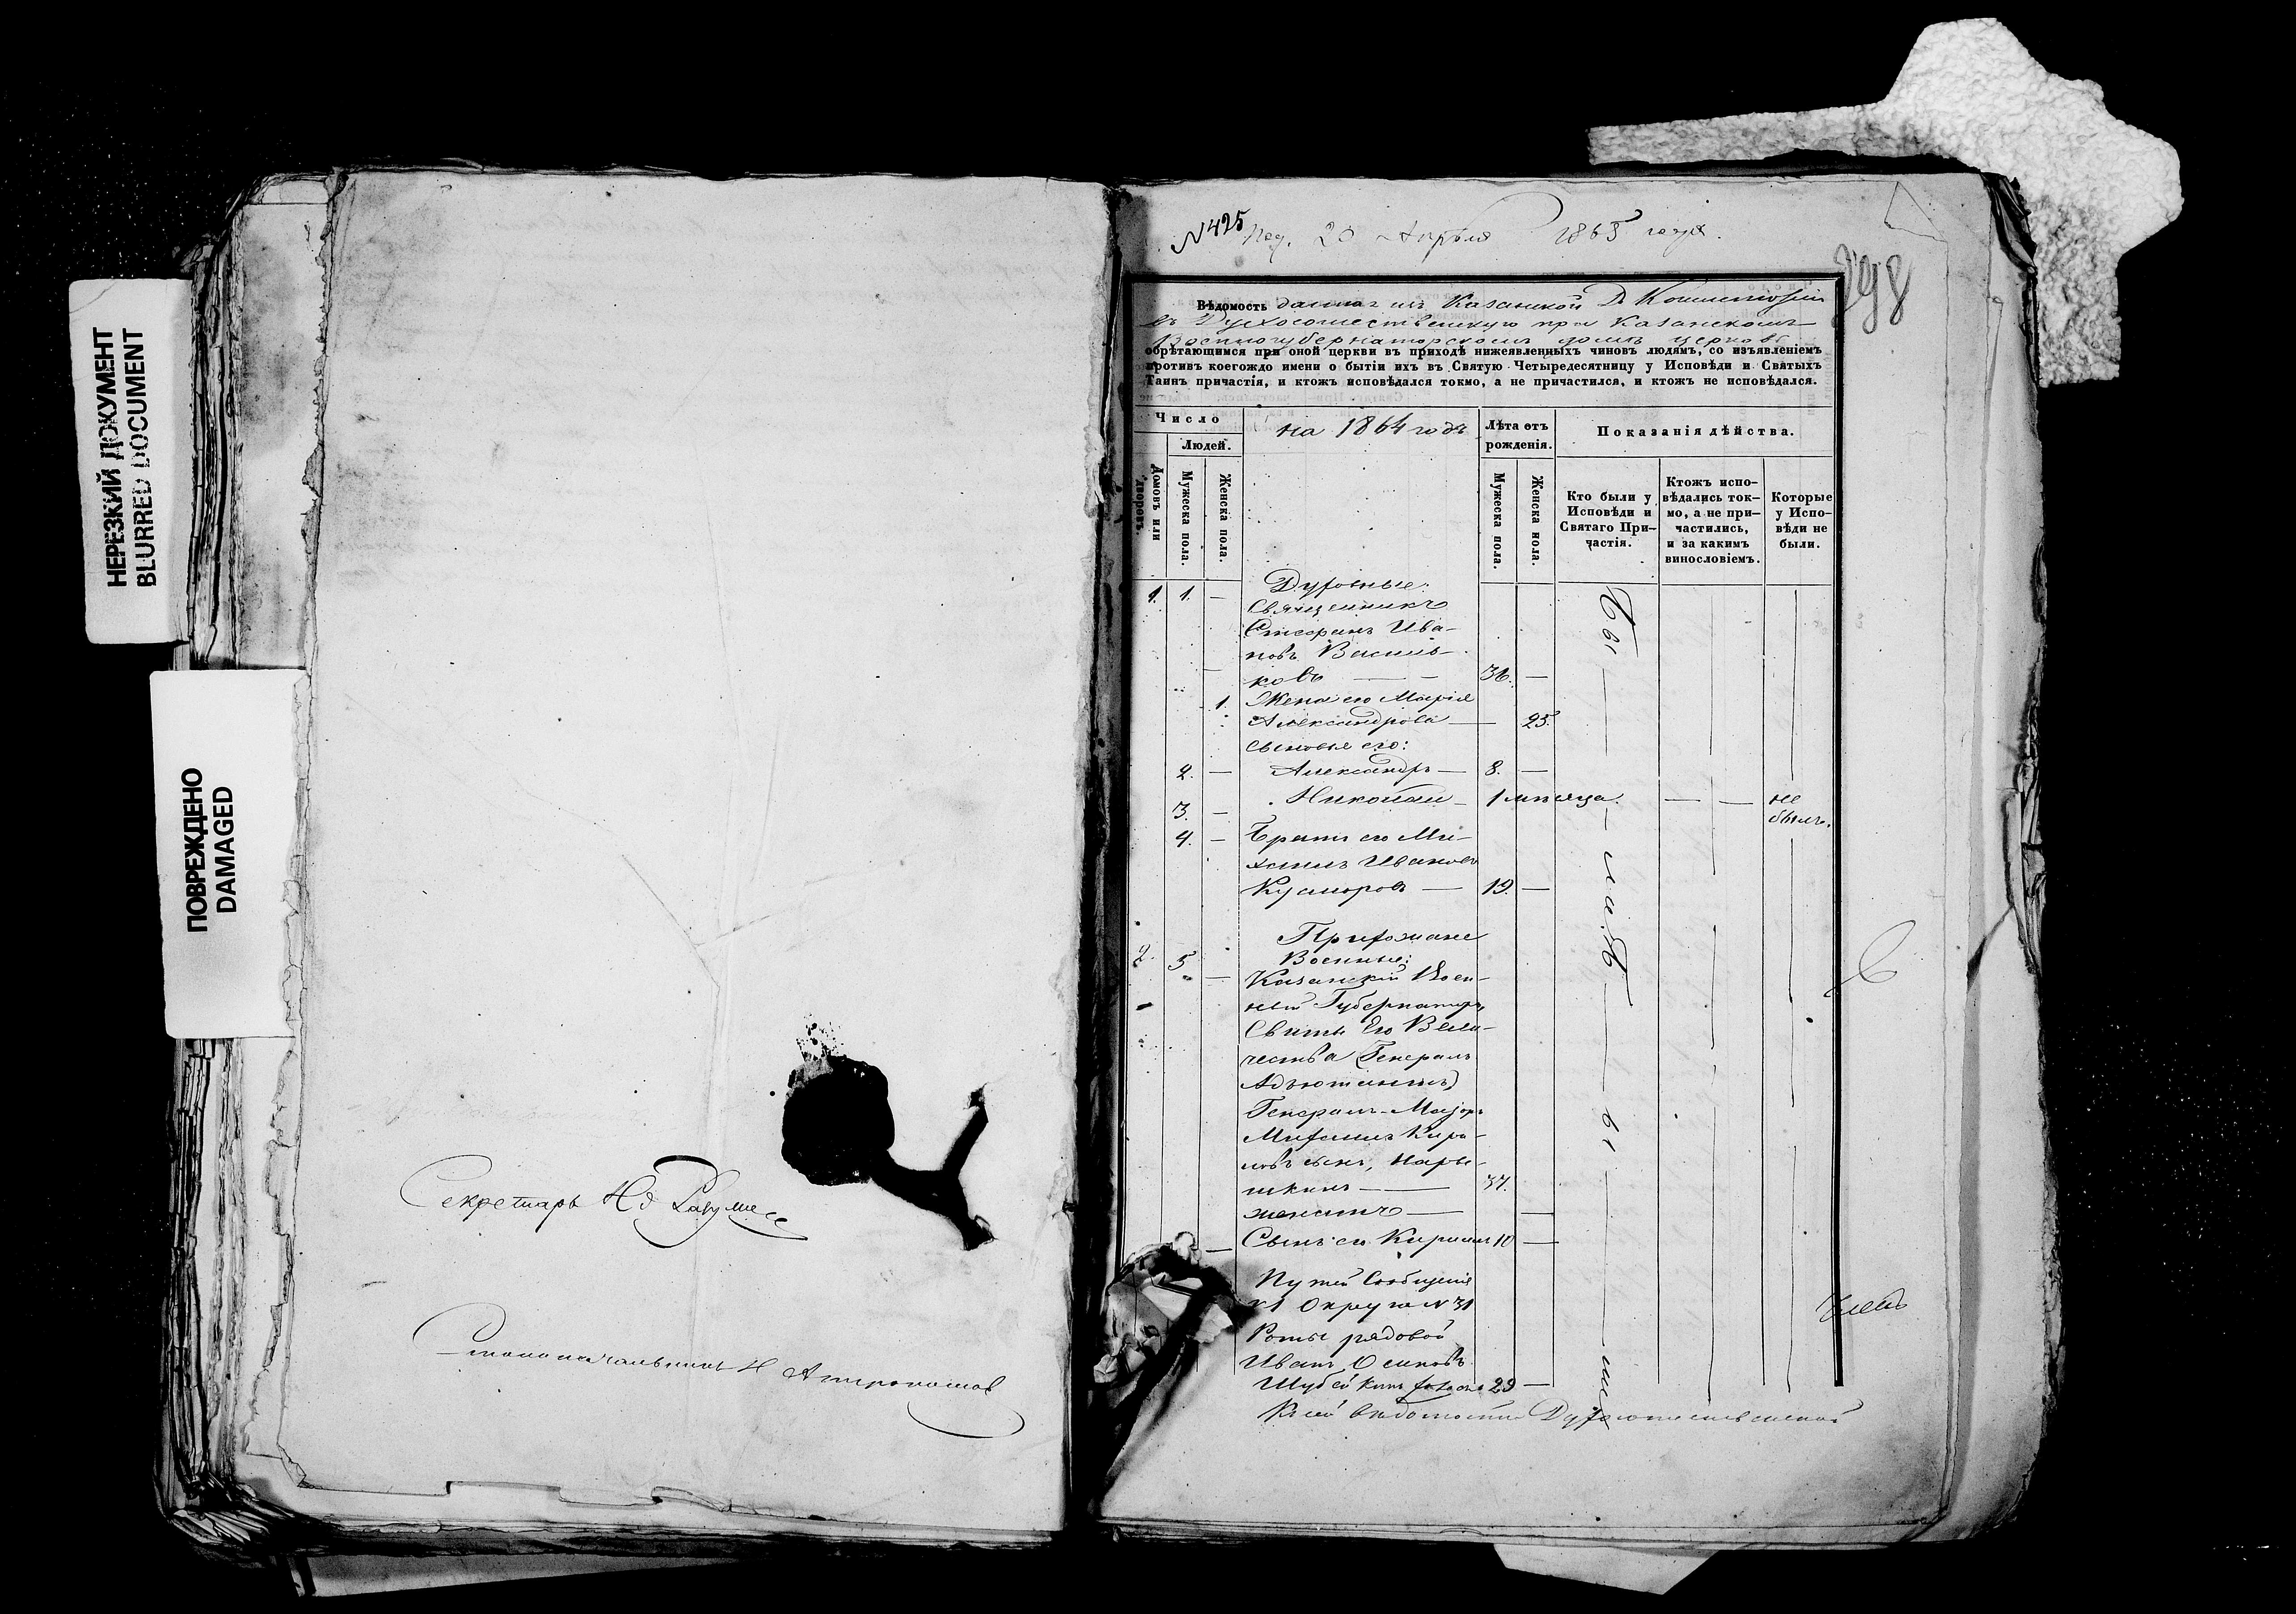 НЕРЕЗКИЙ ДОКУМЕНТ
BLURRED DOCUMENT
ПОВРЕЖДЕНО
DAMAGED
Секретарь
Столоначальникъ
№ 425 20 Апрѣля 1865 года.
398
Вѣдомость данная изъ Казанской Д. Консисторіи
въ Духосошественскую при Казанскомъ
Военногубернаторскомъ домѣ церковь
обрѣтающимся при оной церкви въ приходѣ нижеявленныхъ чиновъ людямъ, со изъявленіемъ
противъ коегождо имени о бытіи ихъ въ Святую Четыредесятницу у Исповѣди и Святыхъ
Таинъ причастія, и ктожъ исповѣдался токмо, а не причастился, и ктожъ не исповѣдался.
Число
Людей.
Домовъ или дворовъ.
Мужеска пола.
Женска пола.
на 1864 годъ
Лѣта отъ
рожденія.
Мужеска пола.
Женска пола.
Показанія дѣйства.
Кто были у
Исповѣди и
Святаго При-
частія.
Ктожъ испо-
вѣдались ток-
мо, а не при-
частились,
и за какимъ
винословіемъ.
Которые
у Испо-
вѣди не
были.
Духовные:
1. 1. — Священникъ
Стефанъ Ива-
новъ Василь-
ковъ — 36. —
1. Жена его Марія
Александрова — 25.
Сыновья его:
2. — Александръ — 8. —
3. — Николай — 1 мѣсяца. — — не
былъ.
4. — Братъ его Ми-
хаилъ Ивановъ
— 19. —
Прихожане
Военные:
2. 5 — Казанскій Воен-
ный Губернаторъ,
Свиты Его Вели-
чества (Генералъ
Адъютантъ)
Генералъ-Маіоръ
Михаилъ Кири-
ловъ сынъ, Нары-
шкинъ — 37.
женатъ — —
— Сынъ его Кириллъ 10 —
Путей Сообщенія
Округа № 31
Роты рядовой
Иванъ Осиповъ
29 —
Къ сей вѣдомости Духосошественской